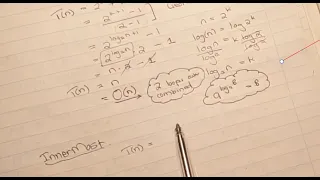 T(n) = 2
= 2^(k+1) - 1
2-1
= 2^(log₂n+1) - 1
= 2^(log₂n) . 2 - 1
= n . 2 - 1
T(n) = n - 1
= O(n)
n = 2^k
log(n) = log 2^k
log n / log 2 = k log 2 / log 2
log₂n = k
2 loops are combined
a^(log_a B) = B
InnerMost
T(n) =